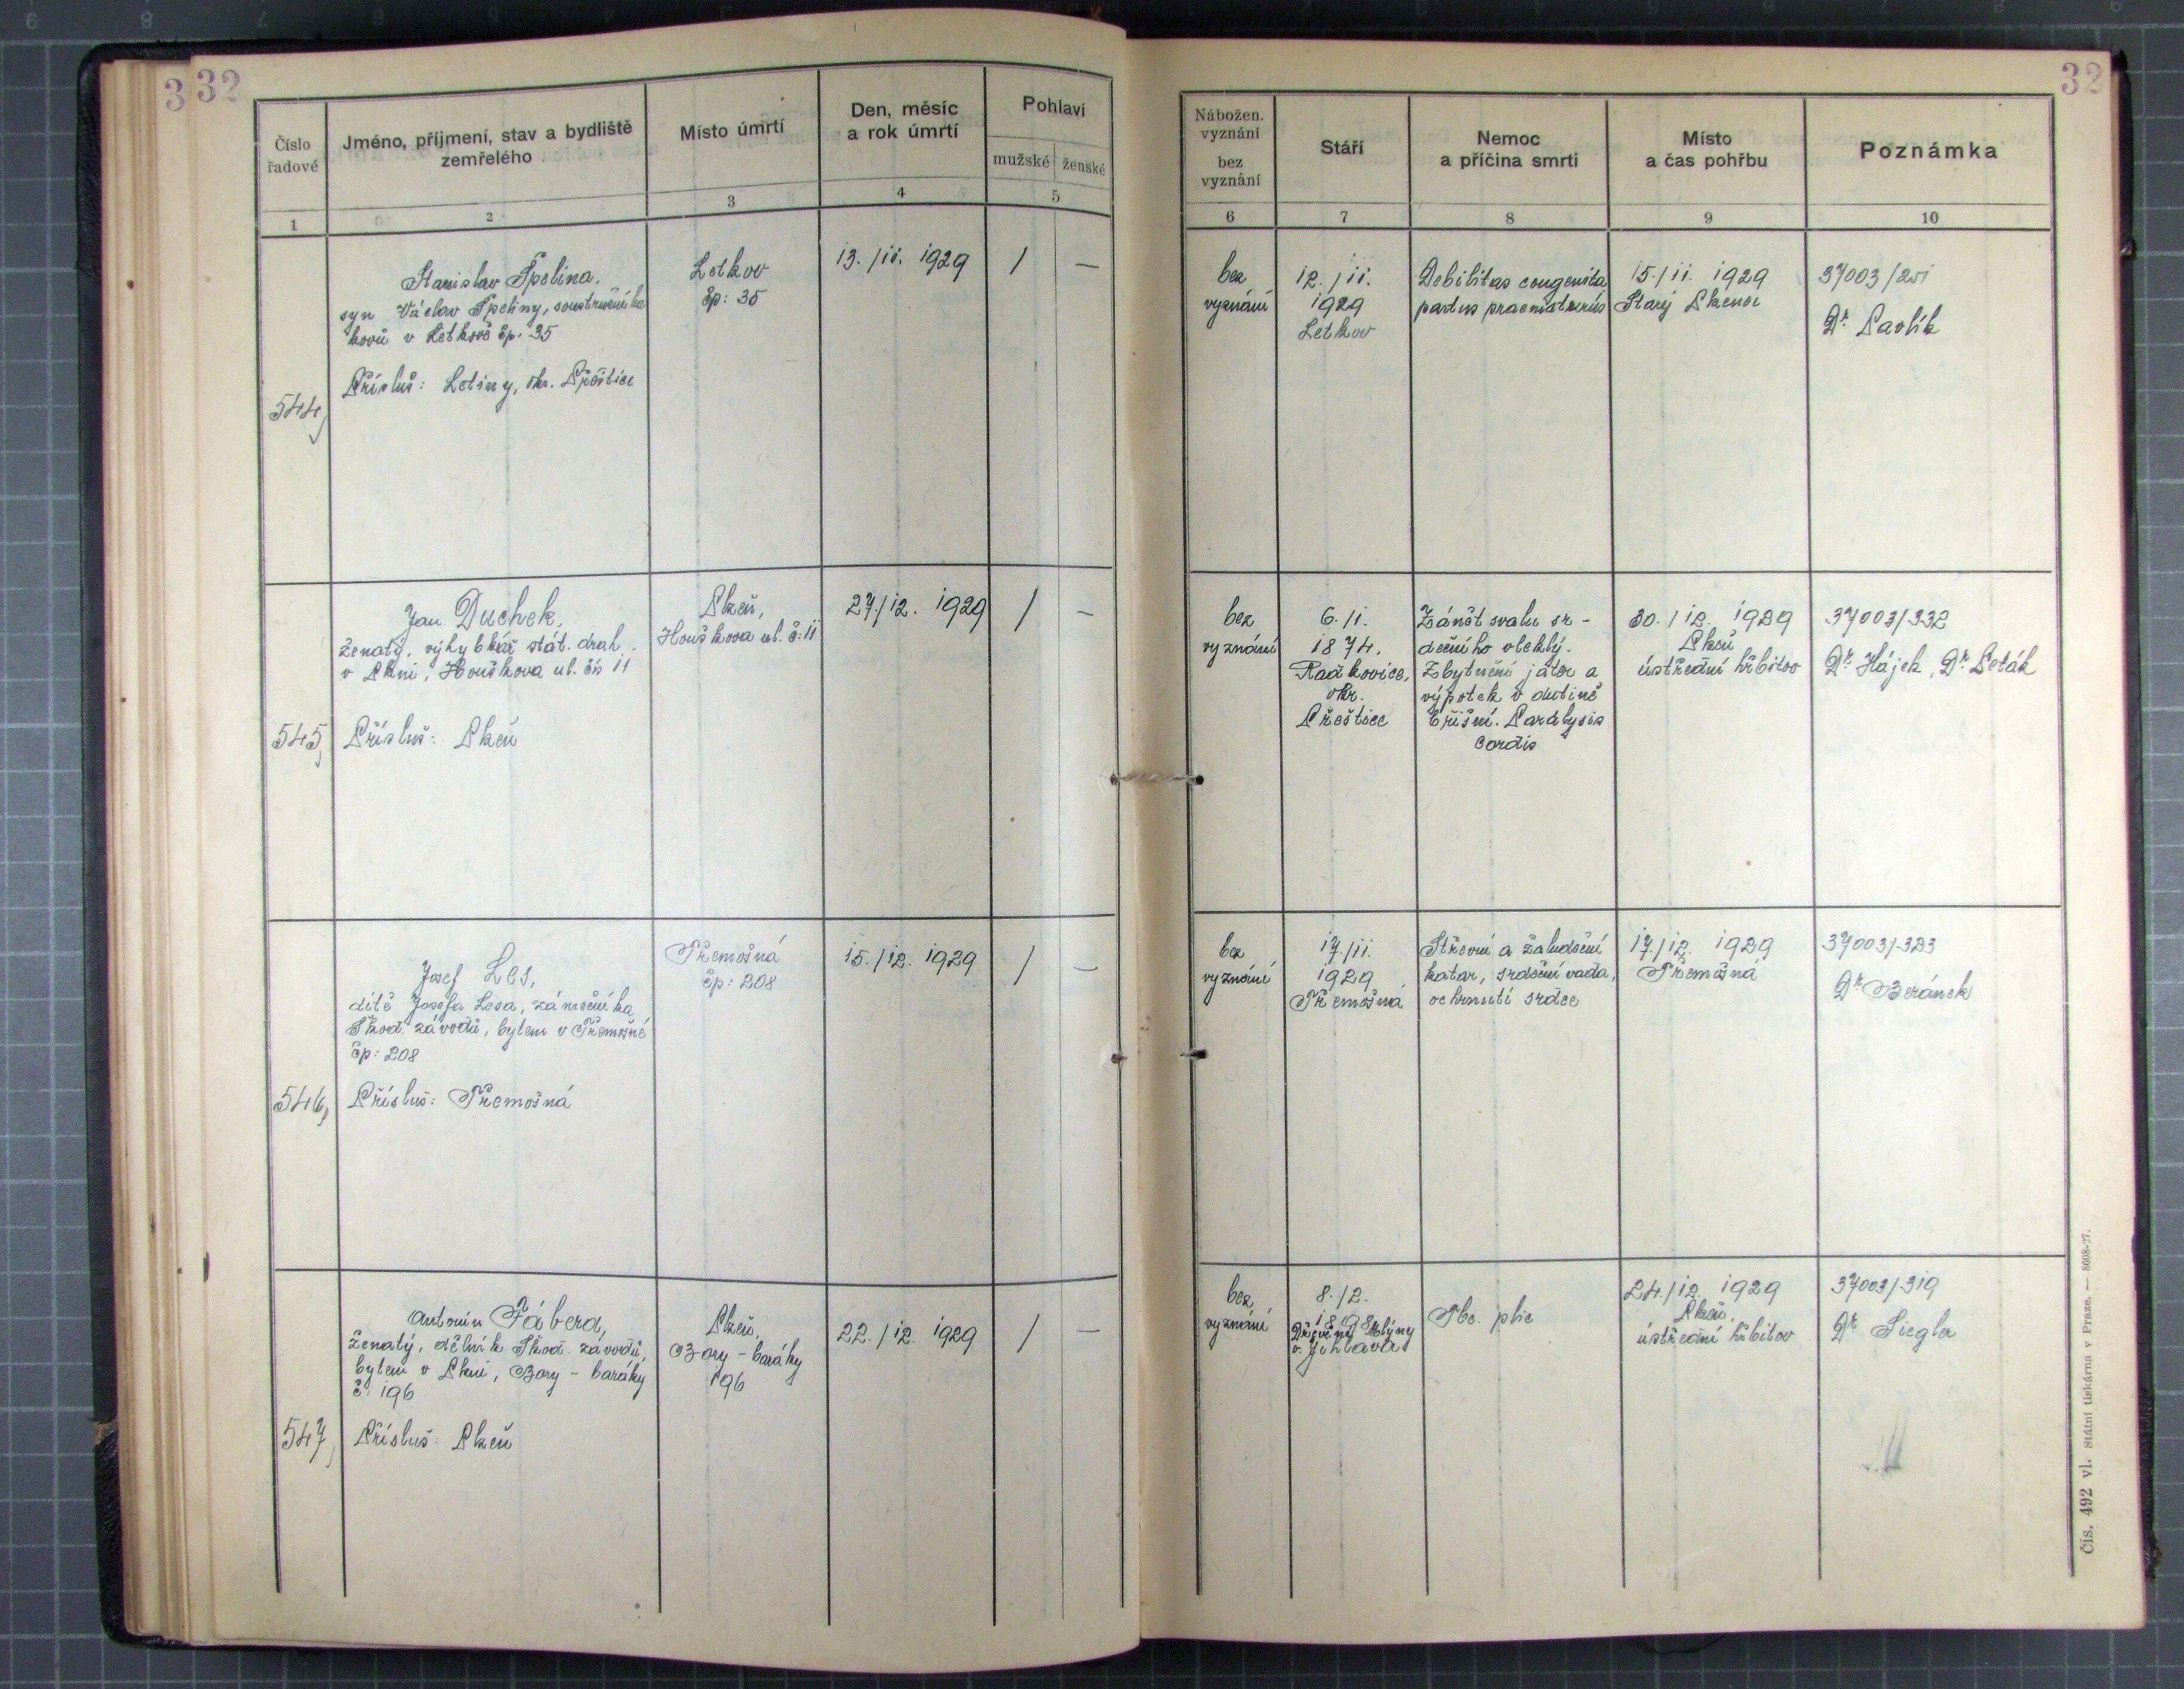 3 32
32
Číslo
řadové
Jméno, příjmení, stav a bydliště
zemřelého
Místo úmrtí
Den, měsíc
a rok úmrtí
Pohlaví
mužské ženské
1 2 3 4 5
Nábožen.
vyznání
bez
vyznání
Stáří
Nemoc
a příčina smrti
Místo
a čas pohřbu
Poznámka
6 7 8 9 10
544,
Stanislav Špelina,
syn Václav Špeliny, soustružníka
kovů v Letkově čp. 35
Přísluš: Letiny, okr. Přeštice
Letkov
čp: 35
13./11. 1929
/ —
bez
vyznání
12./11.
1929
Letkov
Debilitas congenita
partus praematurus
15./11. 1929
Starý Plzenec
37003/
Dr. Pavlík
545,
Jan Duchek,
ženatý, výhybkář stát. drah
v Plzni, Houškova ul. čís 11
Přísluš: Plzeň
Plzeň,
Houškova ul. č: 11
27./12. 1929
/ —
bez
vyznání
6./1.
1874.
Radkovice,
okr.
Přeštice
Zánět svalu sr-
dečního vleklý.
Zbytnění jater a
výpotek v dutině
břišní. Paralysis
cordis
30./12. 1929
Plzeň
ústřední hřbitov
37003/332
Dr. Hájek, Dr. Peták
546,
Josef Les,
dítě Josefa Lesa, zámečníka
Škod. závodů, bytem v Třemošné
čp: 208
Přísluš: Třemošná
Třemošná
čp: 208
15./12. 1929
/ —
bez
vyznání
17./11.
1929
Třemošná
Střevní a žaludeční
katar, srdeční vada,
ochrnutí srdce
17/12. 1929
Třemošná
37003/323
Dr Beránek
547,
Antonín Fábera,
ženatý, dělník Škod. závodů,
bytem v Plzni, Bory - baráky
č: 196
Přísluš: Plzeň
Plzeň,
Bory - baráky
196
22./12. 1929
/ —
bez
vyznání
8./2.
1898
Dřevěné Mlýny
o. Jihlava
Tbc. plic
24./12. 1929
Plzeň,
ústřední hřbitov
37003/319
Dr Siegler
Čís. 492 vl. Státní tiskárna v Praze. — 8608-27.